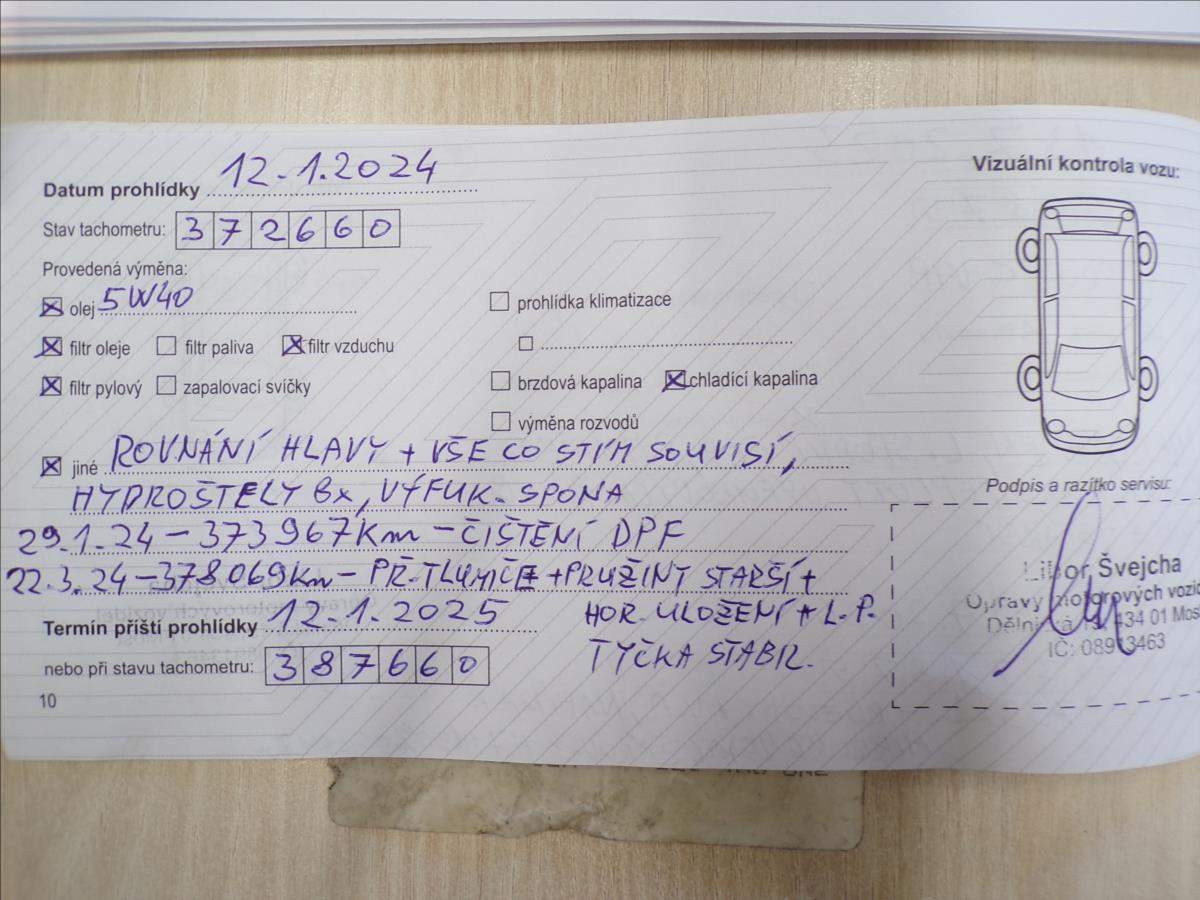 Datum prohlídky 12.1.2024
Stav tachometru: 372660
Provedená výměna:
olej 5W40
filtr oleje filtr paliva filtr vzduchu
filtr pylový zapalovací svíčky
prohlídka klimatizace
brzdová kapalina chladící kapalina
výměna rozvodů
jiné ROVNÁNÍ HLAVY + VŠE CO STÍM SOUVISÍ,
HYDROŠTELY 8x, VÝFUK. SPONA
29.1.24 - 373967Km - ČIŠTĚNÍ DPF
22.3.24 - 378069Km - PŘ. TLUMIČE + PRUŽINY STARŠÍ +
HOR. ULOŽENÍ + L.P.
TYČKA STABIL.
Termín příští prohlídky 12.1.2025
nebo při stavu tachometru: 387660
10
Vizuální kontrola vozu:
Podpis a razítko servisu:
Libor Švejcha
Opravy motorových vozid
Dělnická 434 01 Mos
IČ: 08913463